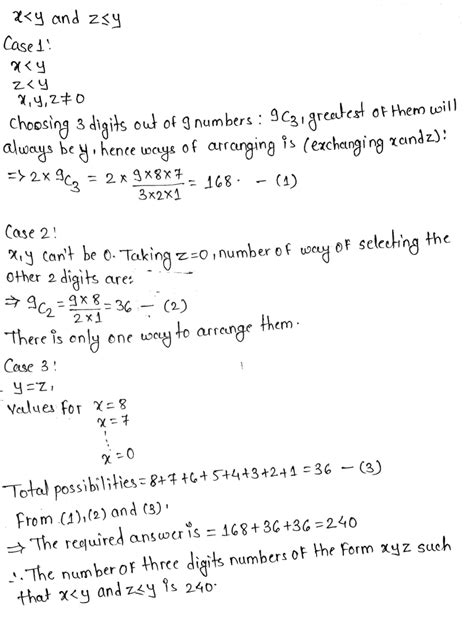 x<y and z≤y
Case 1:
x<y
z<y
x,y,z≠0
Choosing 3 digits out of 9 numbers: 9C₃, greatest of them will
always be y, hence ways of arranging is (exchanging x and z):
=> 2 × 9C₃ = 2 × (9×8×7)/(3×2×1) = 168. – (1)
Case 2:
x,y can't be 0. Taking z=0, number of way of selecting the
other 2 digits are:
⇒ 9C₂ = (9×8)/(2×1) = 36 – (2)
There is only one way to arrange them.
Case 3:
y=z,
values for x=8
x=7
⋮
x=0
Total possibilities = 8+7+6+5+4+3+2+1 = 36 – (3)
From (1), (2) and (3),
⇒ The required answer is = 168+36+36 = 240
∴ The number of three digits numbers of the form xyz such
that x<y and z≤y is 240.